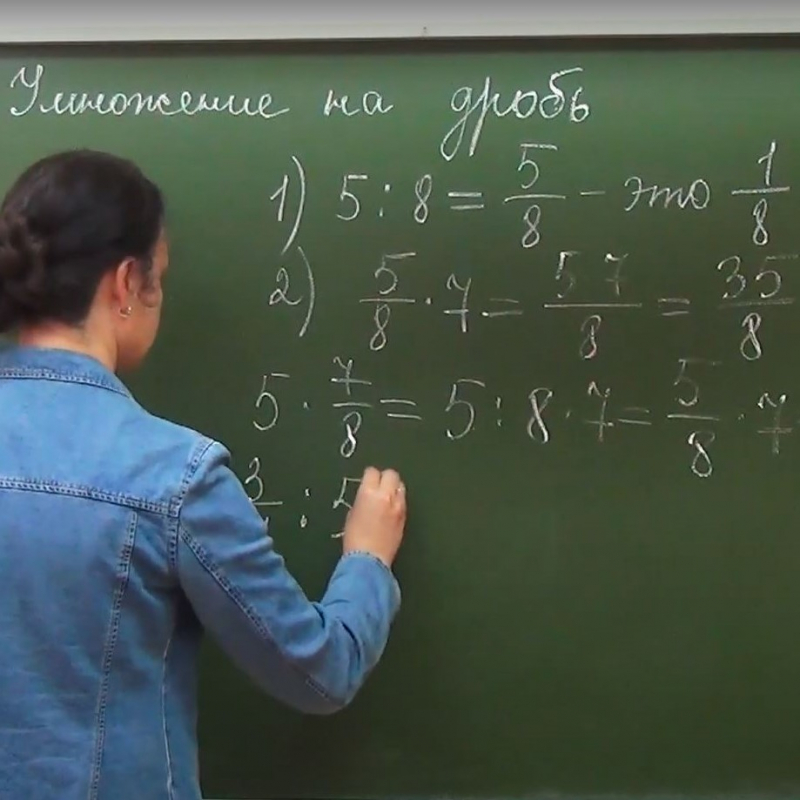 Умножение на дробь
1) 5 : 8 = 5/8 - это 1/8
2) 5/8 · 7 = 5 7/8 = 35/8
5 · 7/8 = 5 : 8 · 7 = 5/8 · 7
3 :